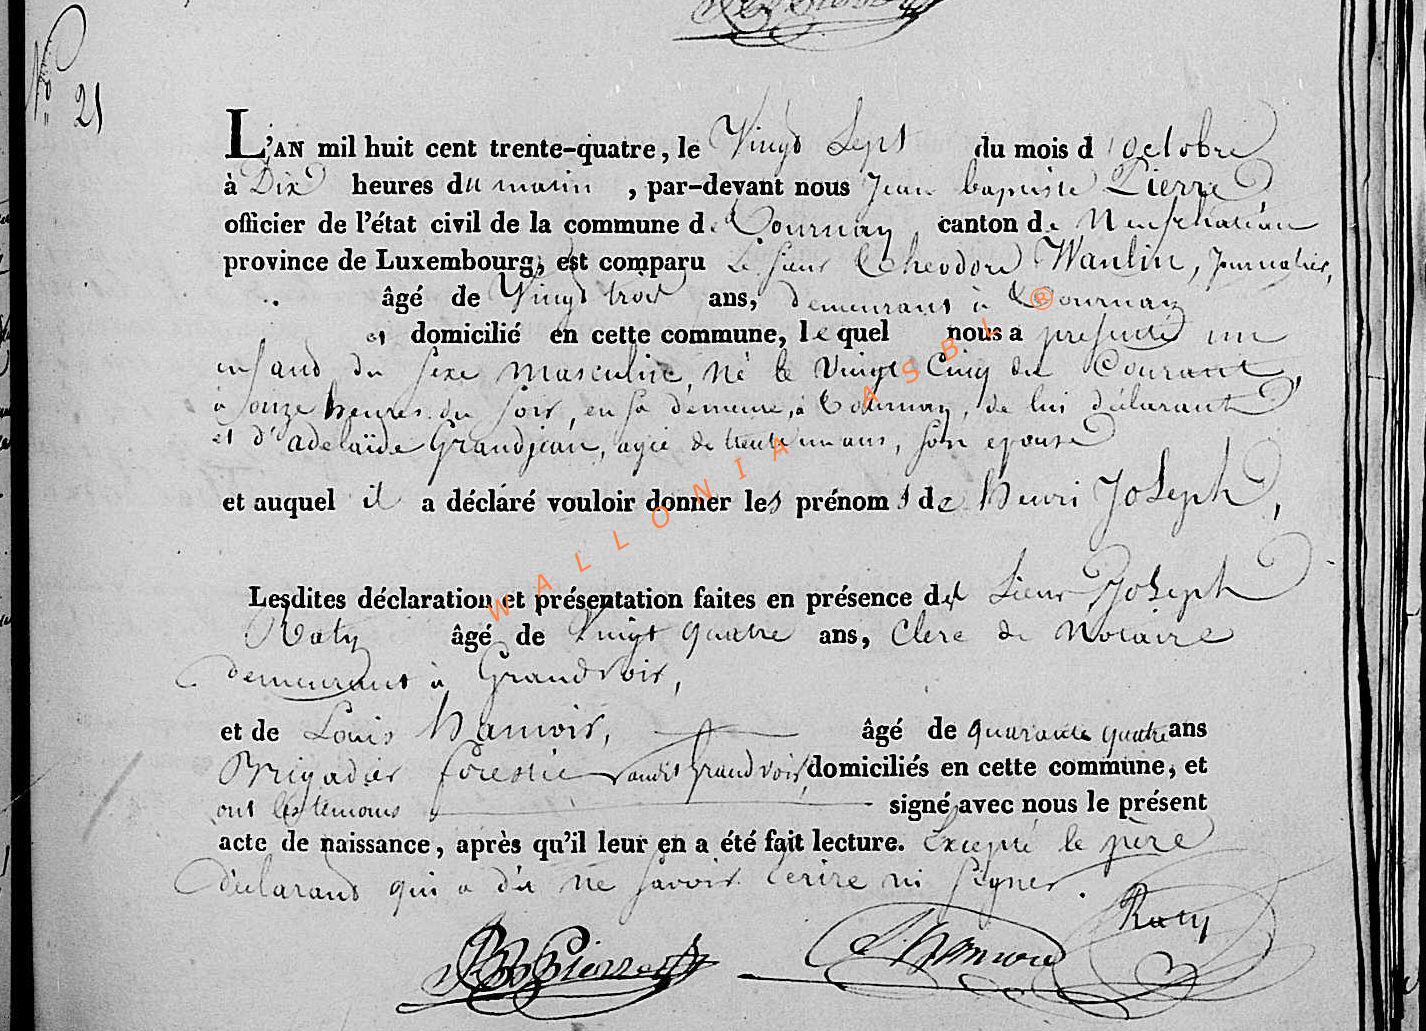 N° 21
L'AN mil huit cent trente-quatre, le Vingt Sept du mois d'octobre
à Dix heures du matin, par-devant nous Jean baptiste Pierre
officier de l'état civil de la commune de Tournay canton de Neufchateau
province de Luxembourg, est comparu le Sieur Theodore Wanlin, Journalier,
âgé de Vingt trois ans, demeurant à Tournay
et domicilié en cette commune, lequel nous a présenté un
enfant du sexe masculin, né le Vingt Cinq du Courant,
à onze heures du soir, en sa demeure, à Tournay, de lui déclarant
et d'adelaïde Grandjean, agée de trente un ans, son epouse
et auquel il a déclaré vouloir donner les prénoms de henri Joseph,
Lesdites déclaration et présentation faites en présence de Sieur Joseph
Raty âgé de Vingt quatre ans, Clerc de Notaire
demeurant à Grandvoir,
et de Louis hamoir, âgé de quarante quatre ans
Brigadier forestier audit grandvoir, domiciliés en cette commune, et
ont les temoins signé avec nous le présent
acte de naissance, après qu'il leur en a été fait lecture. Excepté le père
déclarant qui a dit ne savoir écrire ni signer.
Raty
JB Pierre L. hamoir
WALLONIA ASBL